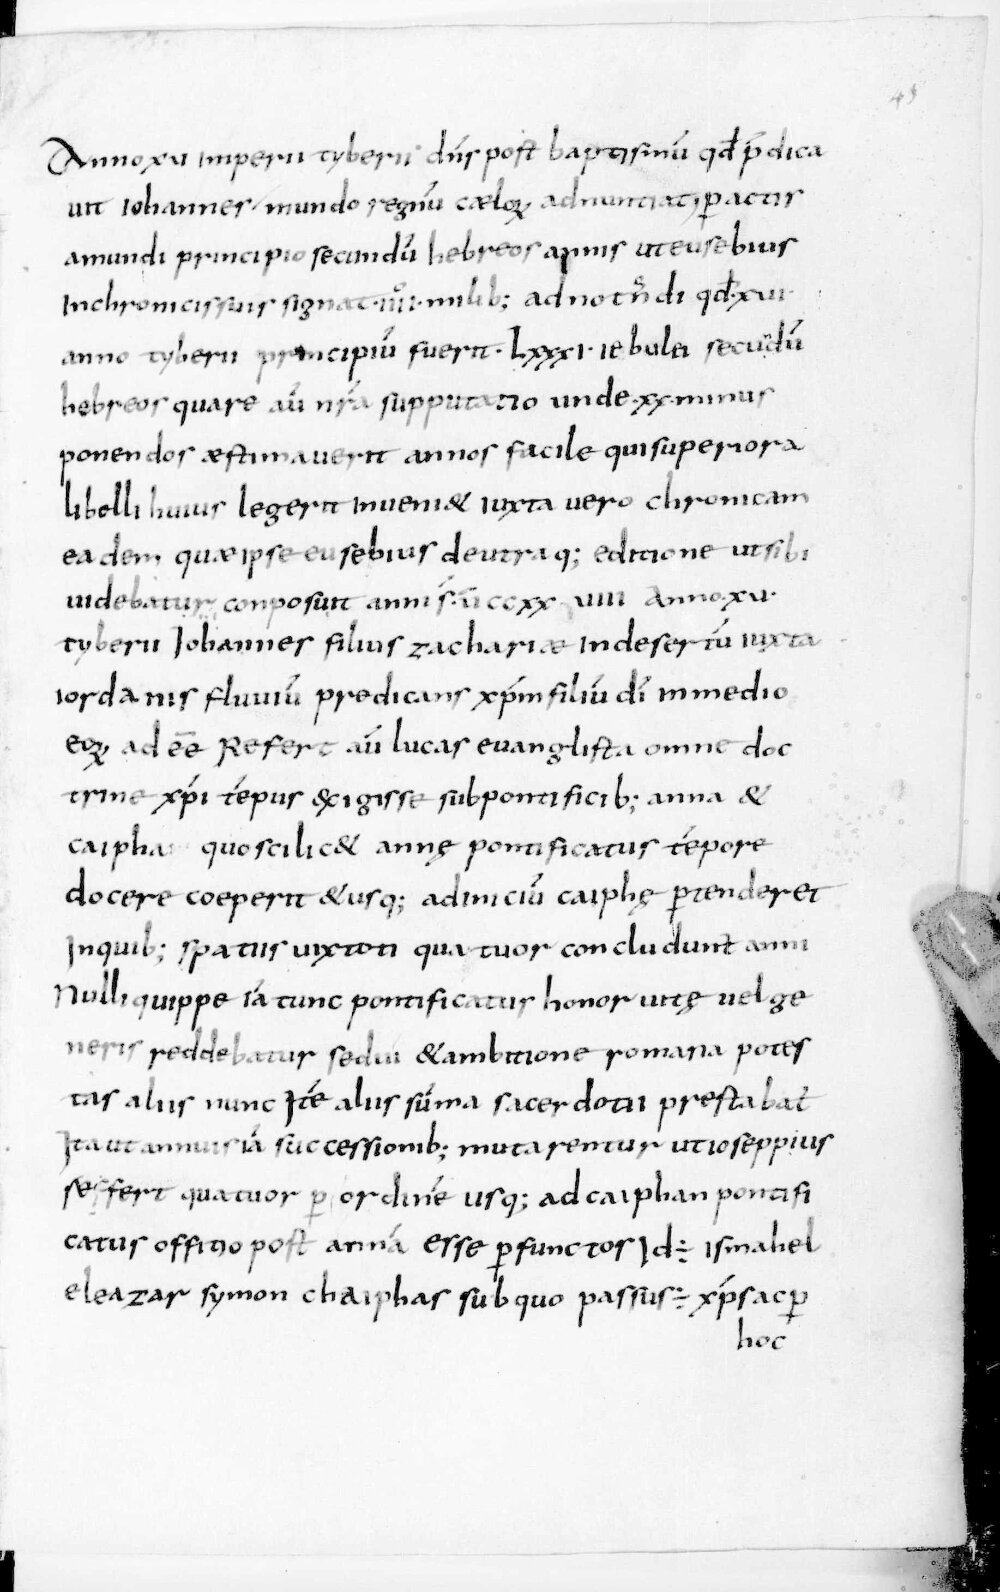 45
Anno xu imperii tyberii dn̄s post baptismū qd̄ p̄dica
uit iohannes mundo regnū cęloꝝ adnuntiat peractis
a mundi principio secundū hebreos annis ut eusebius
in chronicis suis signat · iiii · milib; adnotandi qđ · xui ·
anno tyberii principiū fuerit · Lxxxi · iebulei secūdū
hebreos quare aū nr̄a supputatio unde · xx · minus
ponendos æstimauerit annos facile qui superiora
libelli huius legerit inueni& iuxta uero chronicam
eadem quæ ipse eusebius de utraq; editione ut sibi
uidebatur conposuit anni s̄ · u̅ ccxx uiii Anno · xu ·
tyberii Iohannes filius zachariæ in desertū iuxta
iordanis fluuiū predicans xp̄m filiū dī in medio
eoꝝ adeē̄ Refert aū lucas euanglista omne doc
trine xp̄i tēpus exigisse sub pontificib; anna &
caipha quo scilic& annę pontificatus tēpore
docere coeperit & usq; ad iniciū caiphę ꝑtenderet
in quib; spatiis uix toti quatuor concludunt anni
Nulli quippe iā tunc pontificatus honor uitę uel ge
neris reddebatur sed ui & ambitione romana potes
tas aliis nunc Itē aliis sūma sacerdotii prestabat
Ita ut annuis iā successionib; mutarentur ut ioseppius
refert quatuor ꝑ ordinē usq; ad caiphan pontifi
catus offitio post annā esse ꝑfunctos Id ÷ ismahel
eleazar symon chaiphas sub quo passus ÷ xp̄s ac ꝑ
hoc